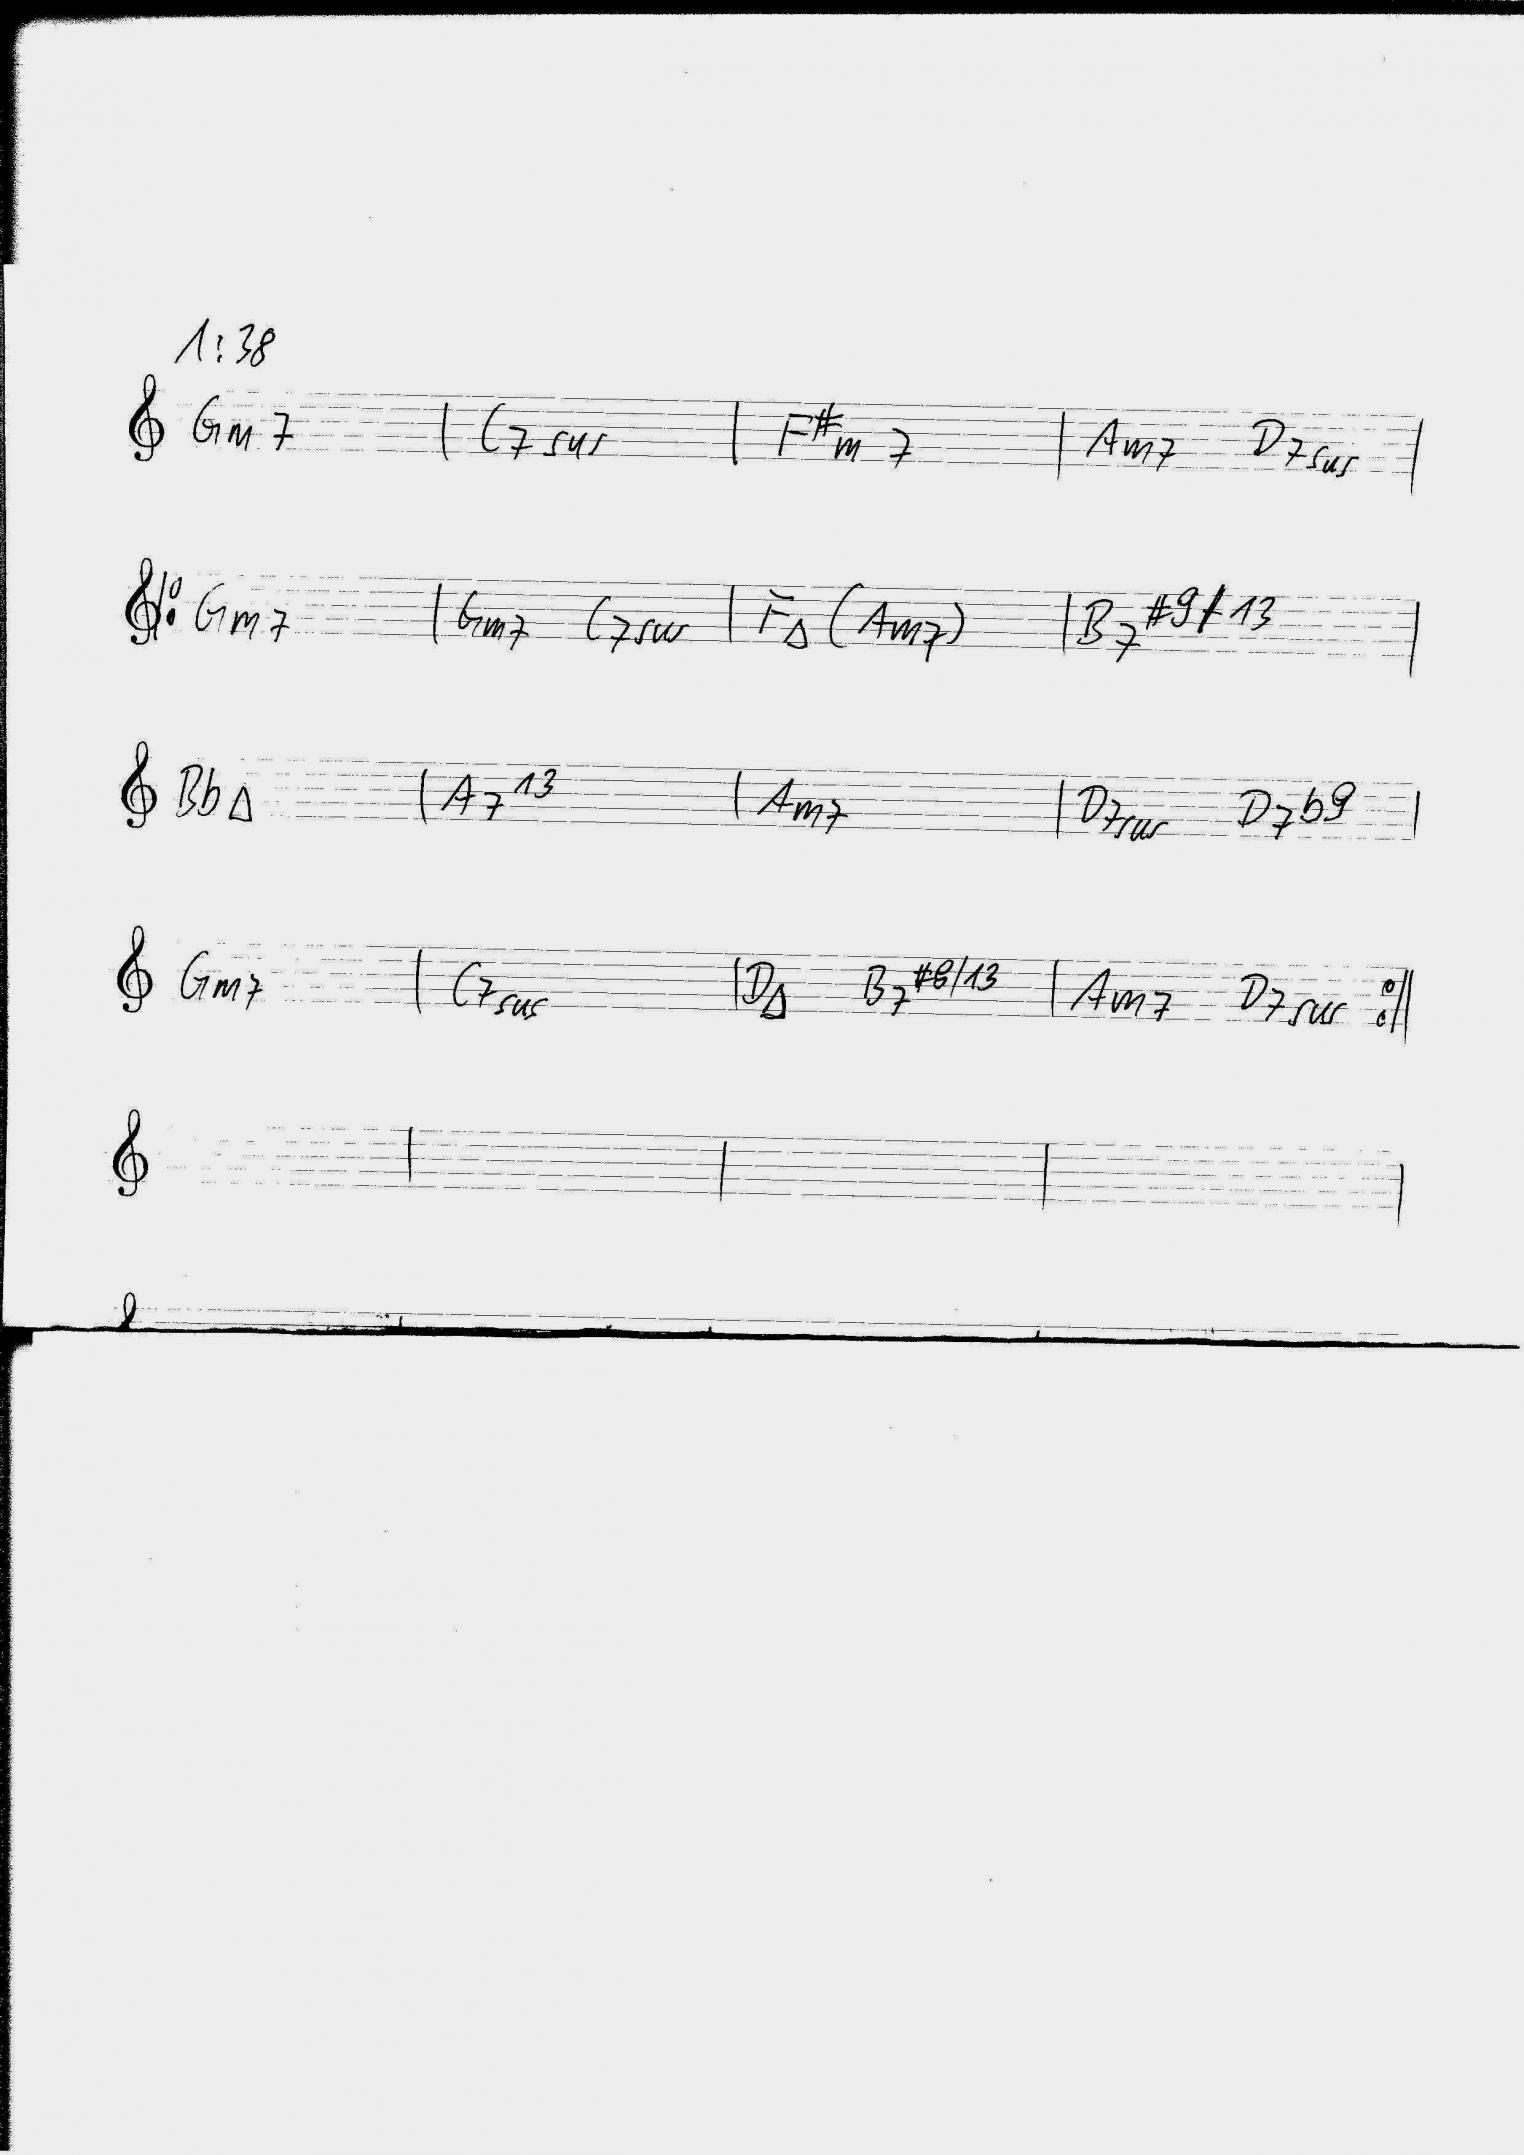 1:38
Gm7 | C7sus | F#m7 | Am7 D7sus |
|: Gm7 | Gm7 C7sus | FΔ (Am7) | B7#9/13 |
BbΔ | A7 13 | Am7 | D7sus D7b9 |
Gm7 | C7sus | DΔ B7#9/13 | Am7 D7sus :||